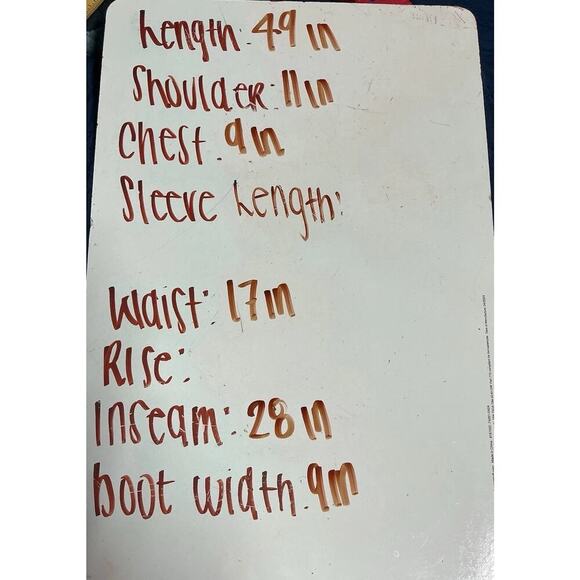 Length: 49 in
Shoulder: 11 in
Chest: 9 in
Sleeve Length:
Waist: 17 in
Rise:
Inseam: 28 in
boot width: 9in